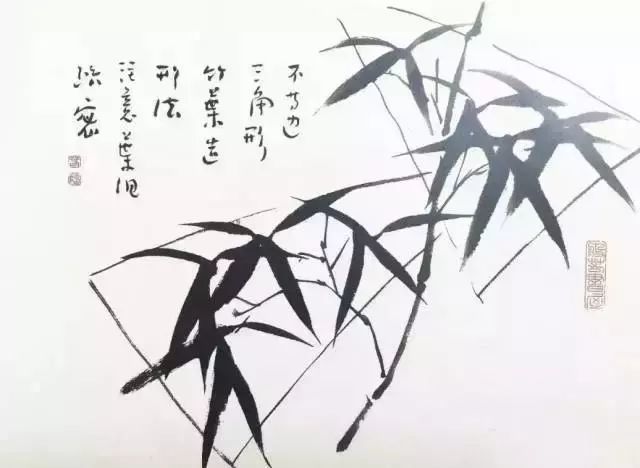 不等边
三角形
竹葉造
形法
注意葉組
疏密